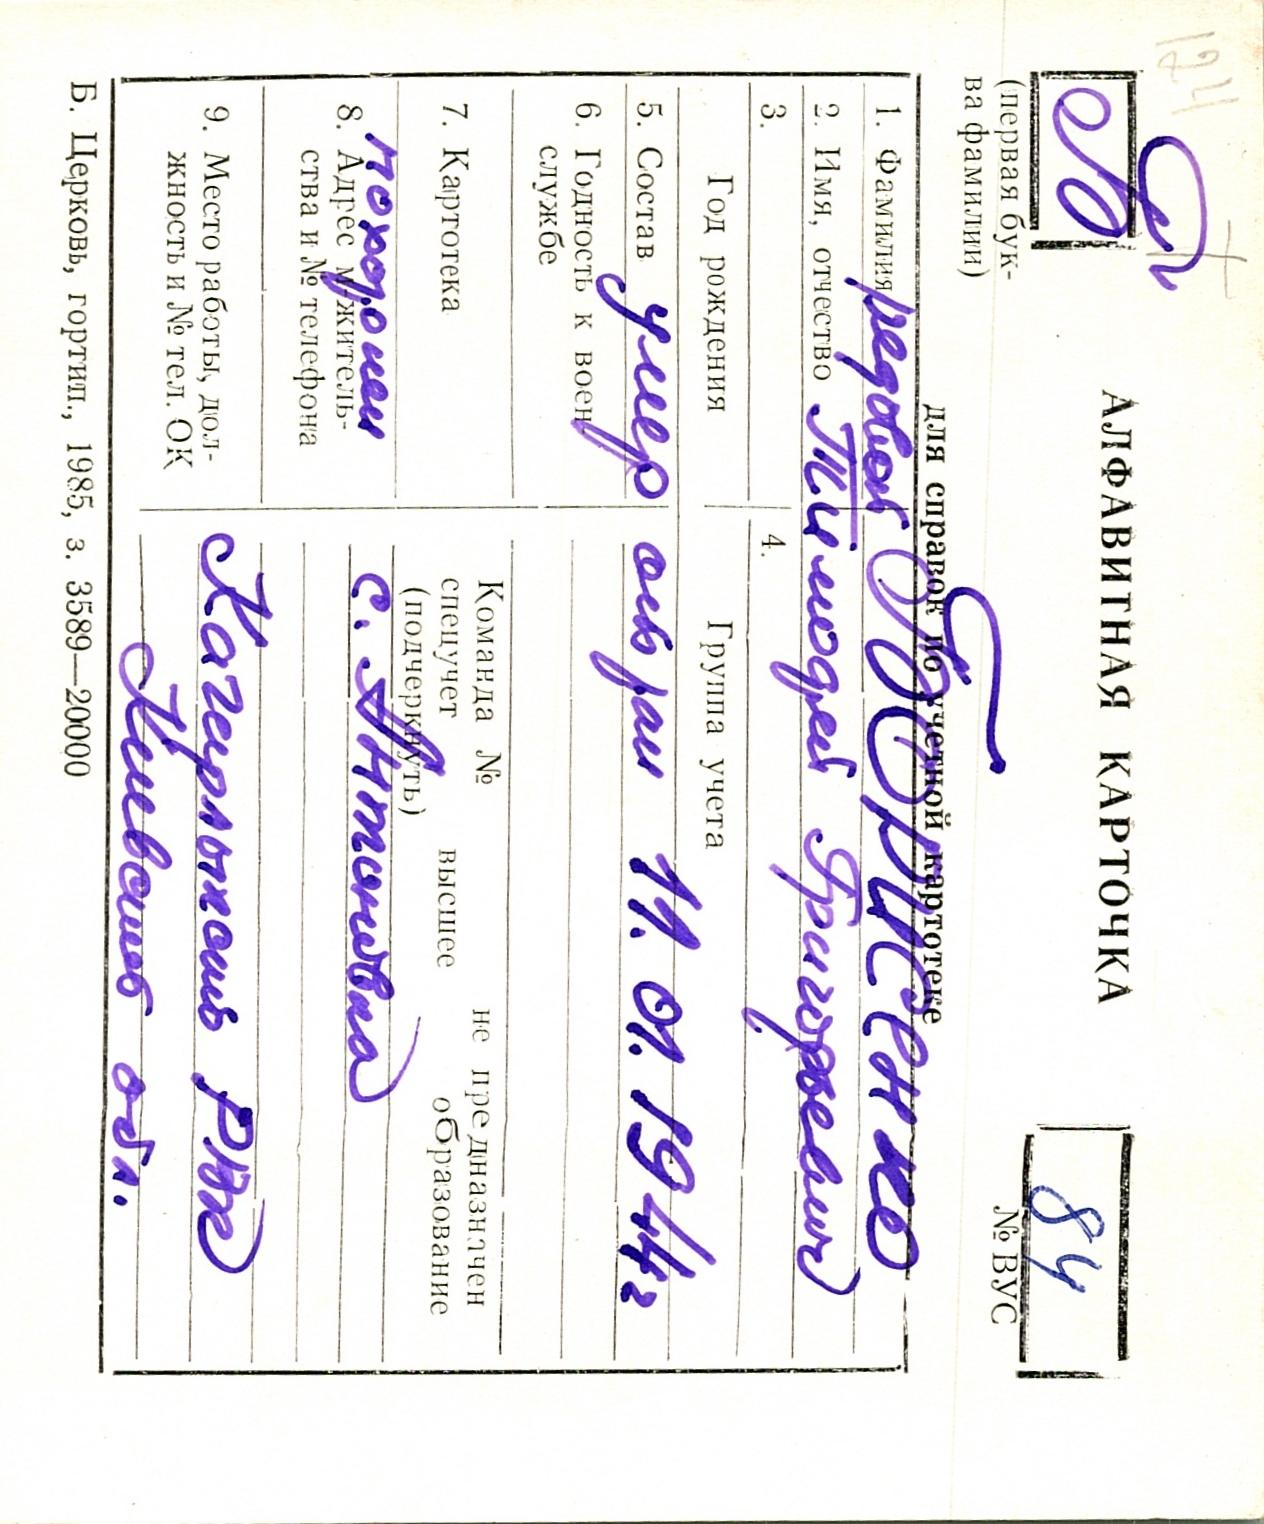 1241
Б
АЛФАВИТНАЯ КАРТОЧКА
84
(первая бук-
ва фамилии)
для справок по учетной картотеке
№ ВУС
1. Фамилия рядовой Борисенко
2. Имя, отчество Тимофей Григорьевич
3.
4.
Год рождения
Группа учета
5. Состав умер от ран 11. 01. 1944 г
6. Годность к воен
службе
7. Картотека
Команда №
не предназначен
спецучет
высшее
образование
(подчеркнуть)
8. Адрес м/житель-
ства и № телефона
похоронен
с. Антоновка
9. Место работы, дол-
жность и № тел. ОК
Кагарлыкский РВК
Киевской обл.
Б. Церковь, гортип., 1985, з. 3589—20000